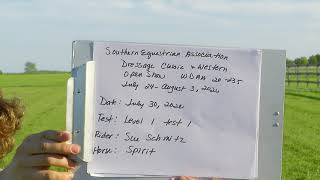 Southern Equestrian Association
Dressage Clubiz & Western
Open Show WDAA 20-235
July 24-August 3, 2020
Date: July 30, 2020
Test: Level 1 test 1
Rider: Sue Schmitz
Horse: Spirit